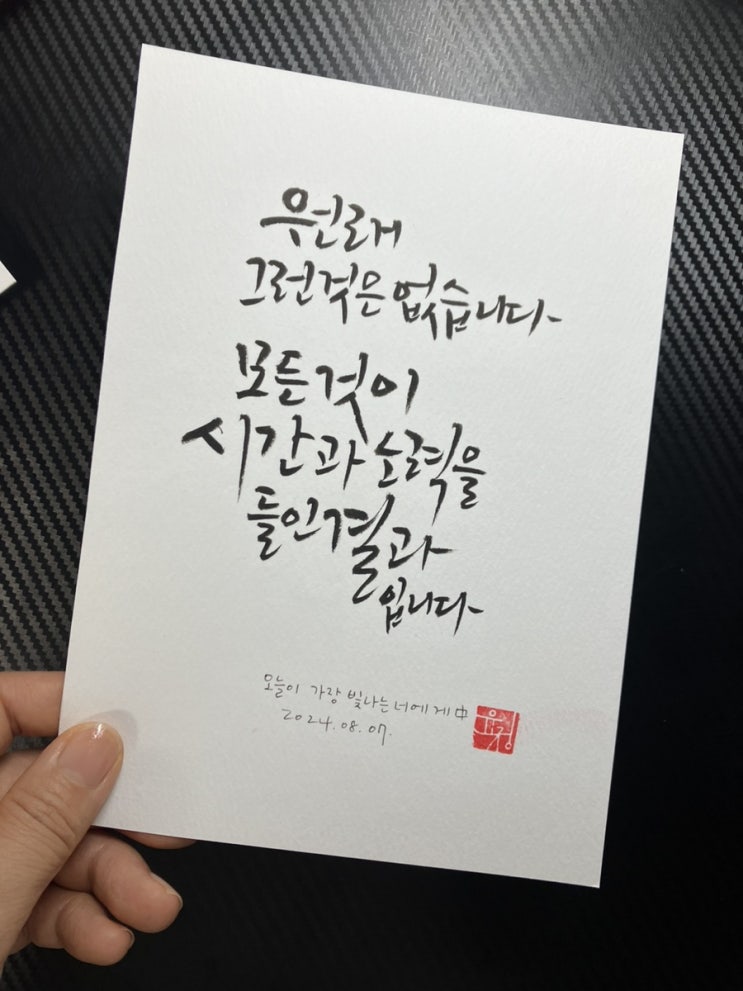 우연르게
그런것은 없습니다
모든것이
시간과 노력을
들인 결과
입니다
오늘이 가장 빛나는 너에게 中
2024.08.07.